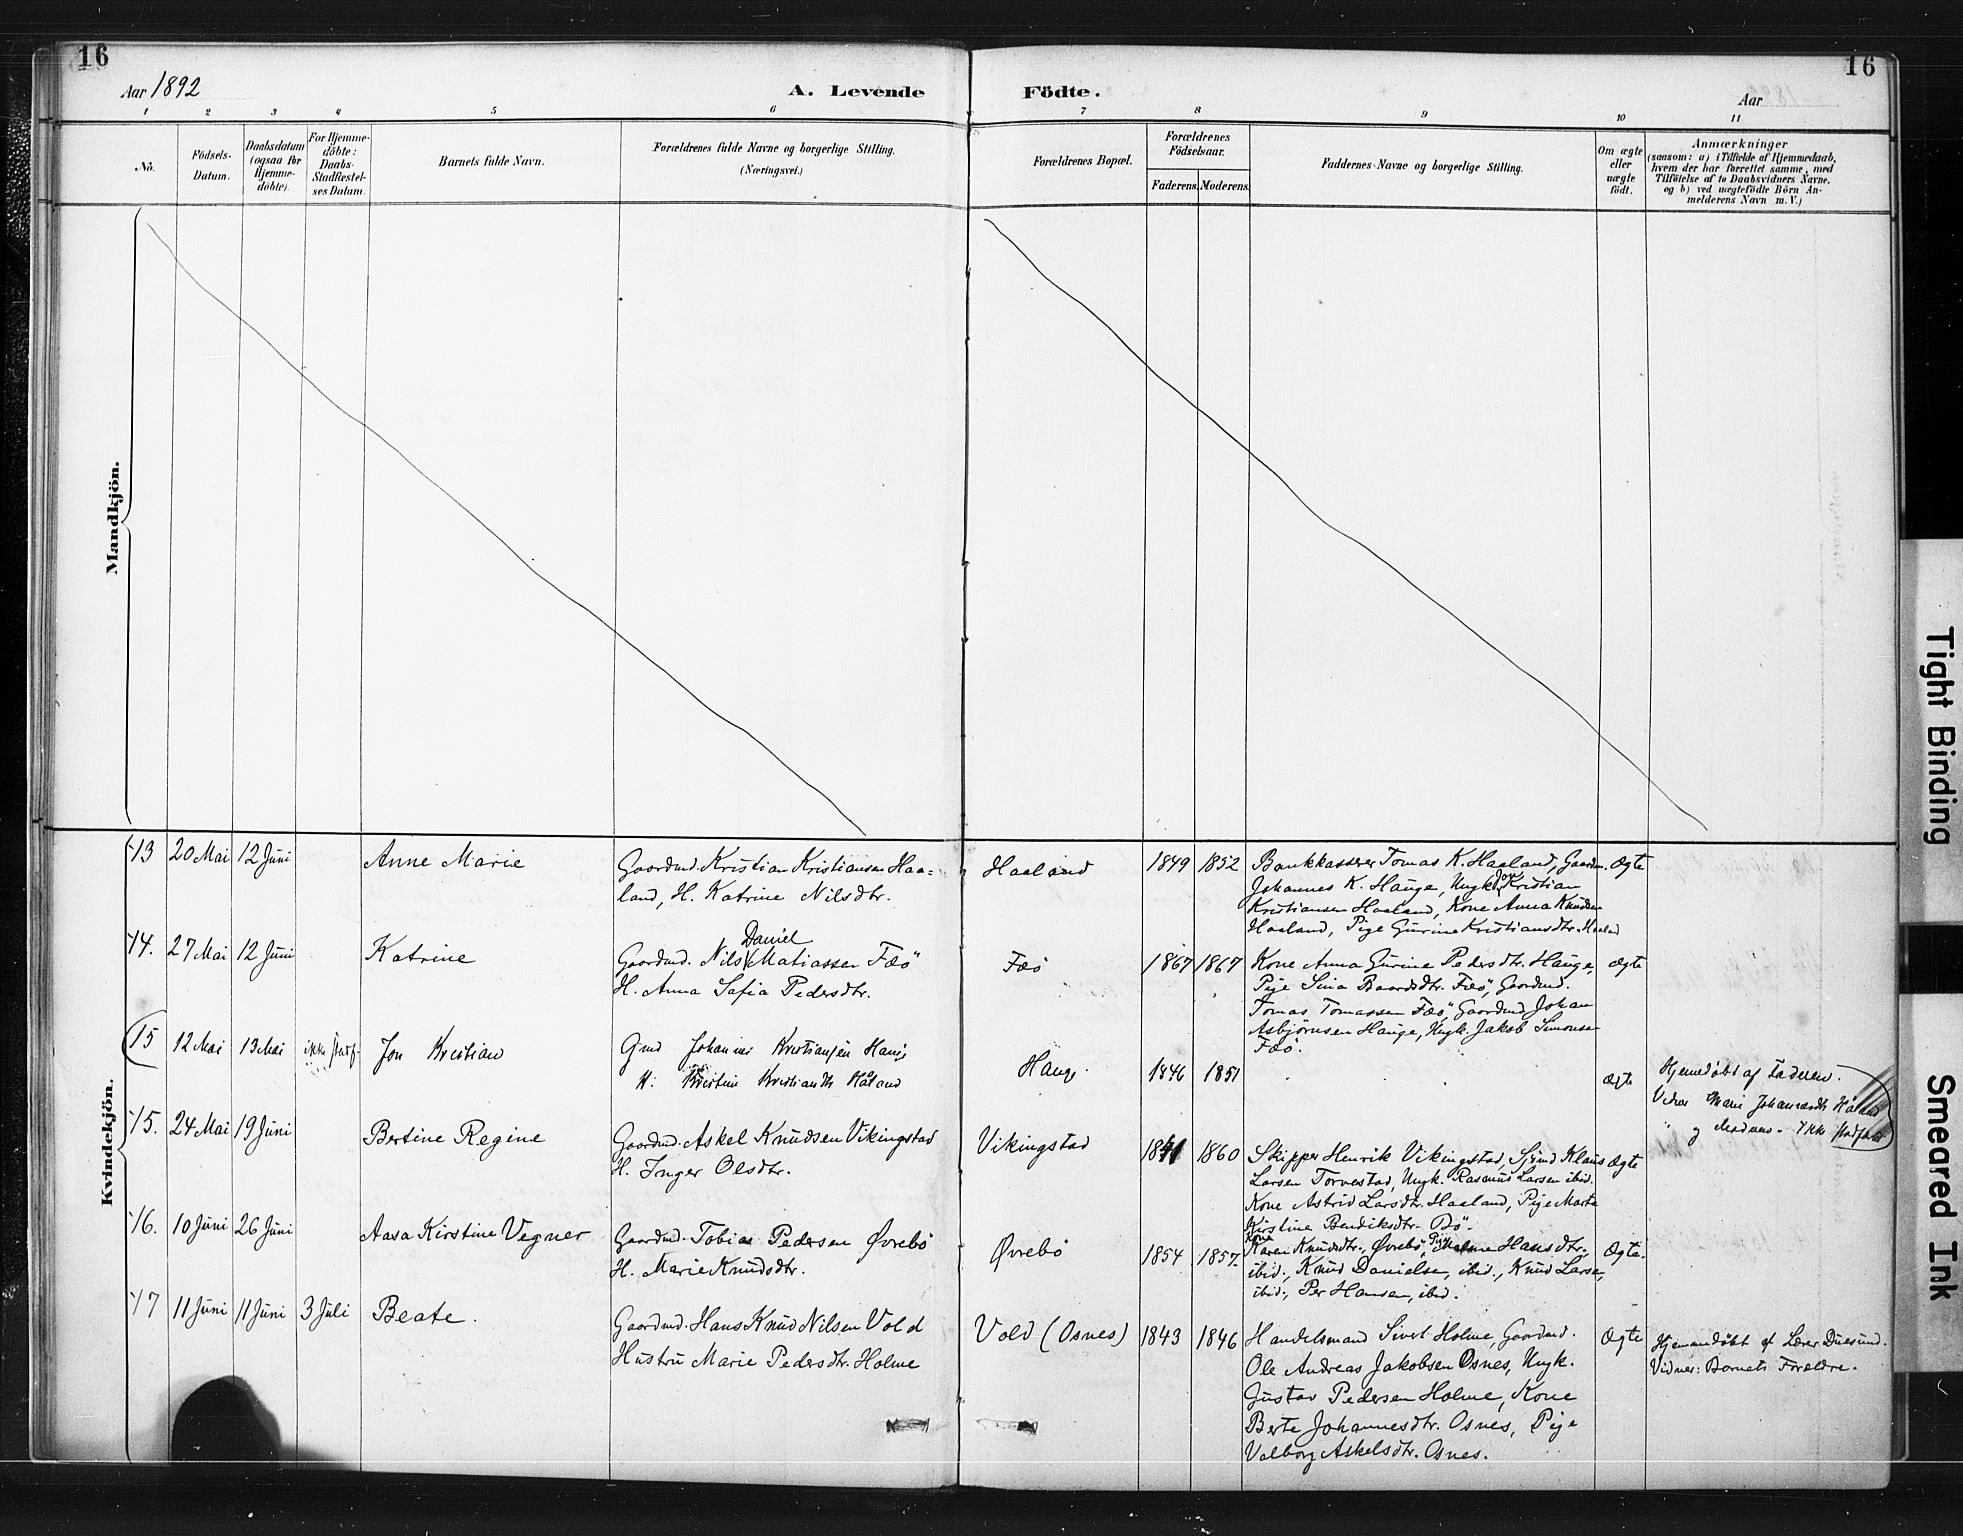 16
16
Aar 1892
A. Levende
Födte.
Aar
1 2 3 4 5 6 7 8 9 10 11
No.
Födsels-
Datum.
Daabsdatum
(ogsaa for
Hjemme-
döbte).
For Hjemme-
döbte:
Daabs-
Stadfæstel-
ses Datum.
Barnets fulde Navn.
Forældrenes fulde Navne og borgerlige Stilling.
(Næringsvei.)
Forældrenes Bopæl.
Forældrenes
Födselsaar.
Faderens. Moderens.
Faddernes Navne og borgerlige Stilling.
Om ægte
eller
uægte
födt.
Anmærkninger
(saasom: a) i Tilfælde af Hjemmedaab,
hvem der har forrettet samme, med
Tilföielse af to Daabsvidners Navne,
og b) ved uægtefödte Börn An-
melderens Navn m. V.)
Mandkjön.
Kvindekjön.
13 20 Mai 12 Juni Anne Marie
Gaardmd. Kristian Kristiansen Haa=
land, H. Katrine Nilsdtr.
Haaland 1849 1852
Bankkasserer Tomas K. Haaland, Gaardm.
Johannes K. Hauge, Ungk. Jon Kristian
Kristiansen Haaland, Kone Anna Knudsen
Haaland, Pige Gurine Kristiansdtr. Haaland
Ægte
14. 27 Mai 12 Juni Katrine
Daniel
Gaardmd. Nils Matiassen Fæö
H. Anna Safia Pedersdtr.
Fæö 1867 1867
Kone Anna Gurine Pedersdtr. Hauge,
Pige Sina Baardsdtr. Fæö, Gaardmd.
Tomas Tomassen Fæö, Gaardmd Johan
Asbjörnsen Hauge, Ungk. Jakob Simonsen
Fæö.
Ægte
15 12 Mai 13 Mai ikke stadf. Jon Kristian
Gmd Johannes Kristiansen Hauge
H. Kristine Kristiansdtr Håland
Hauge 1846 1851
Ægte
Hjemmedøbt af Faderen.
Vidner Marie Johannesdtr Håland
og Moderen. Ikke stadfæstet
15. 24 Mai 19 Juni Bertine Regine
Gaardmd. Askel Knudsen Vikingstad
H. Inger Olsdtr.
Vikingstad 1860
Skipper Henrik Vikingstad, Sjömd Klaus
Larsen Torvestad, Ungk. Rasmus Larsen ibid.
Kone Astrid Larsdtr. Haaland, Pige Marta
Kirstine Bendiksdtr. Bö.
Ægte
16. 10 Juni 26 Juni Aasa Kirstine Vegner
Gaardmd. Tobias Pedersen Øvrebö
H. Marie Knudsdtr.
Øvrebö 1854 1857.
Kone
Karen Knudsdtr., Øvrebö, Pige Malene Hansdtr.
ibid., Knud Danielsen, ibid., Knud Larsen,
ibid., Per Hansen, ibid.
Ægte.
17 11 Juni 11 Juni 3 Juli Beate.
Gaardmd. Hans Knud Nilsen Vold
Hustru Marie Pedersdtr. Holme
Vold (Osnes) 1843 1846
Handelsmand Sivert Holme, Gaardmd.
Ole Andreas Jakobsen Osnes, Ungk.
Gustav Pedersen Holme, Kone
Berte Johannesdtr. Osnes, Pige
Valborg Askelsdtr. Osnes.
Ægte
Hjemmedøbt af Lærer Duesund.
Vidner: Barnets Forældre.
Tight Binding
Smeared Ink